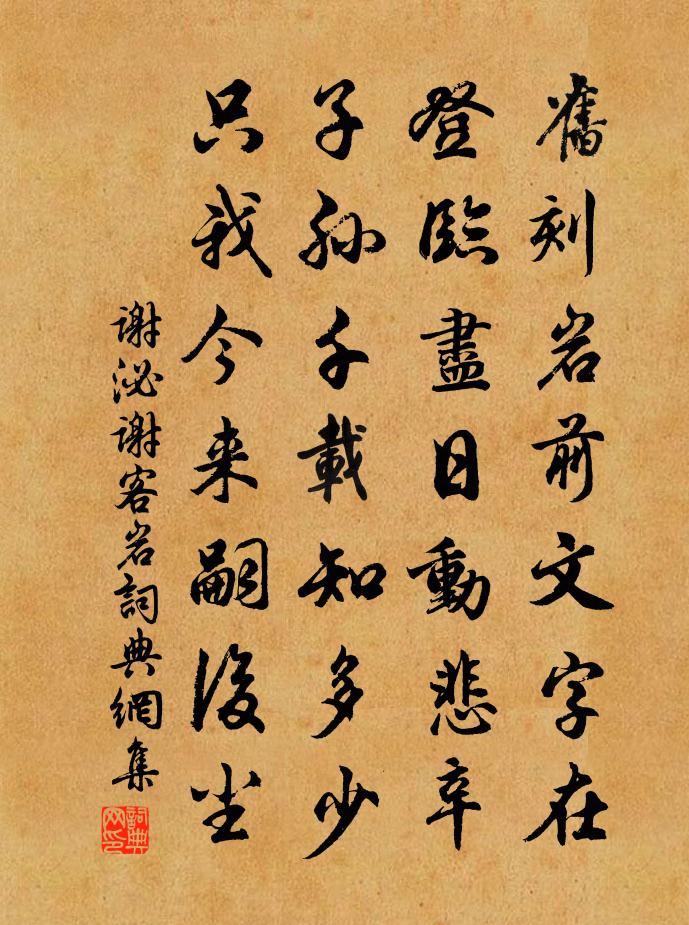 舊刻岩前文字在
登臨盡日動悲辛
子孫千載知多少
只我今来嗣後尘
謝泌謝客岩詞典網集
詞典网印